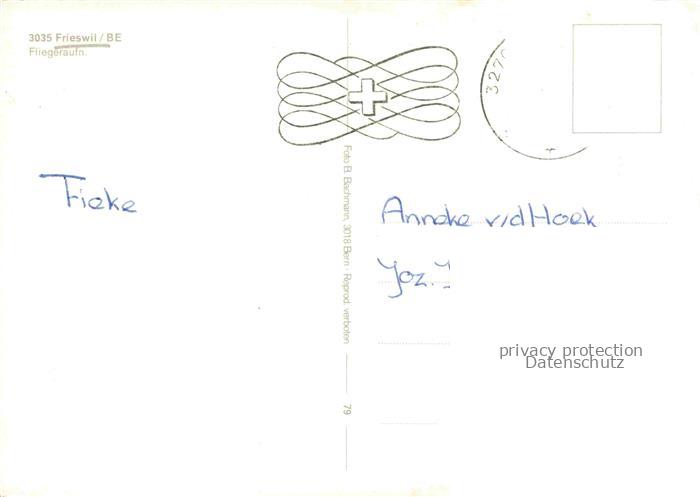 3035 Frieswil / BE
Fliegeraufn.
327
Foto B. Bachmann, 3018 Bern Reprod. verboten
79
Fieke
Anneke v/d Hoek
privacy protection
Datenschutz